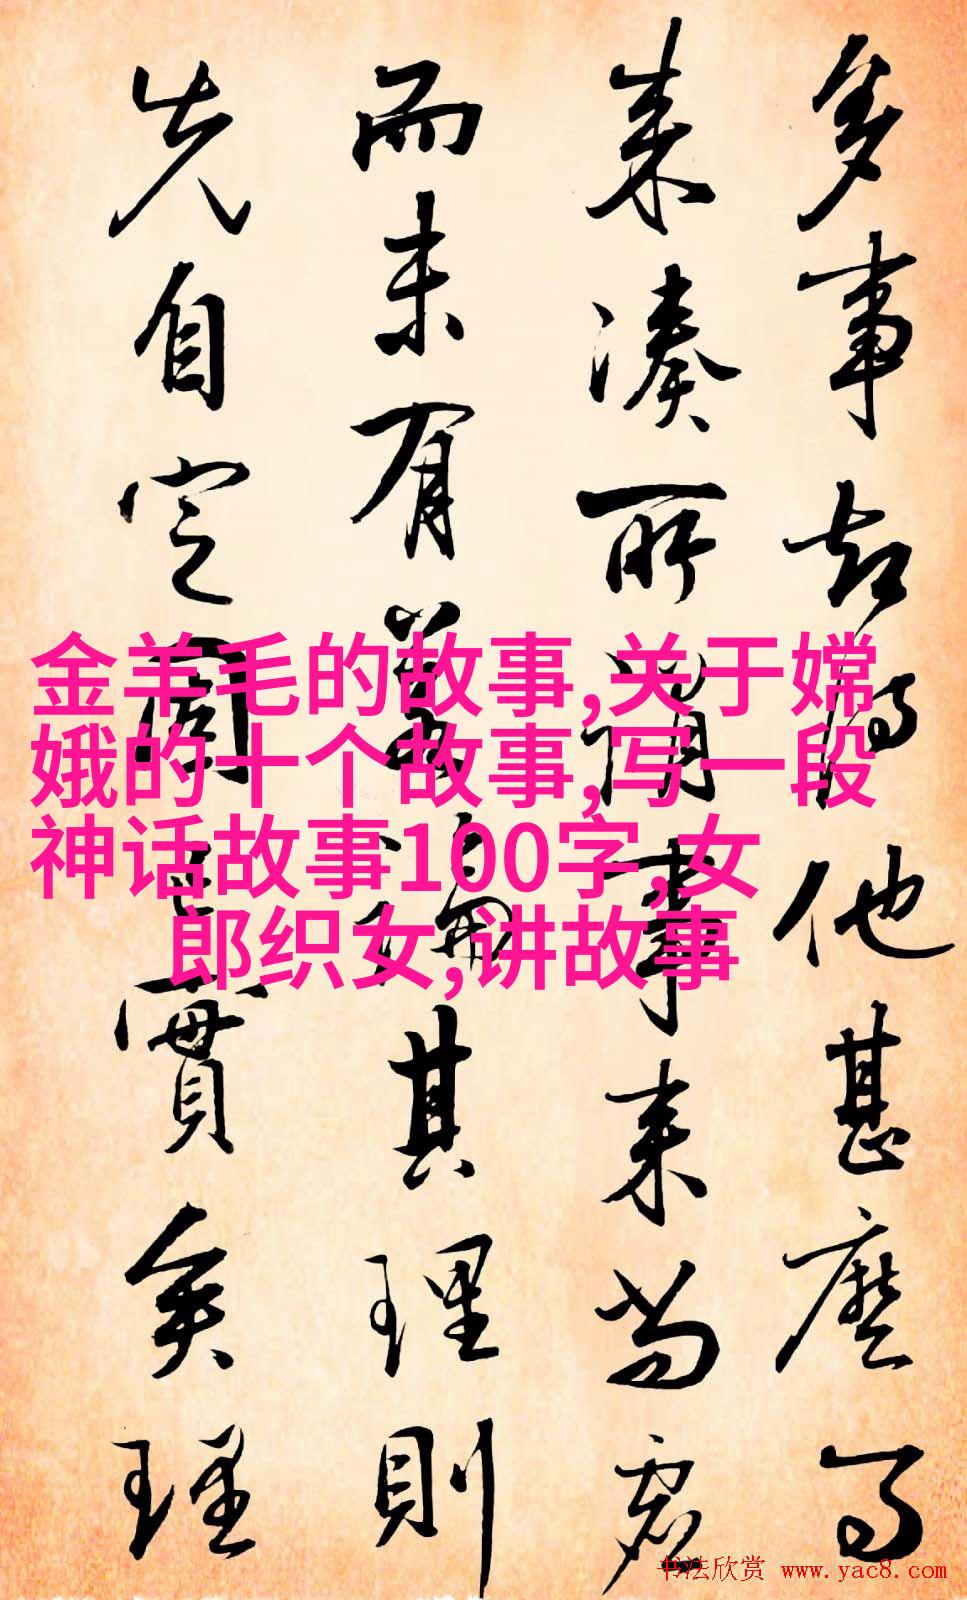 多事却他甚麼
来湊所謂事来
而未有論其理則
先自定固實矣理
金羊毛的故事,关于嫦
娥的十个故事,写一段
神话故事100字,女
郎织女,讲故事
书法欣赏 www.yac8.com